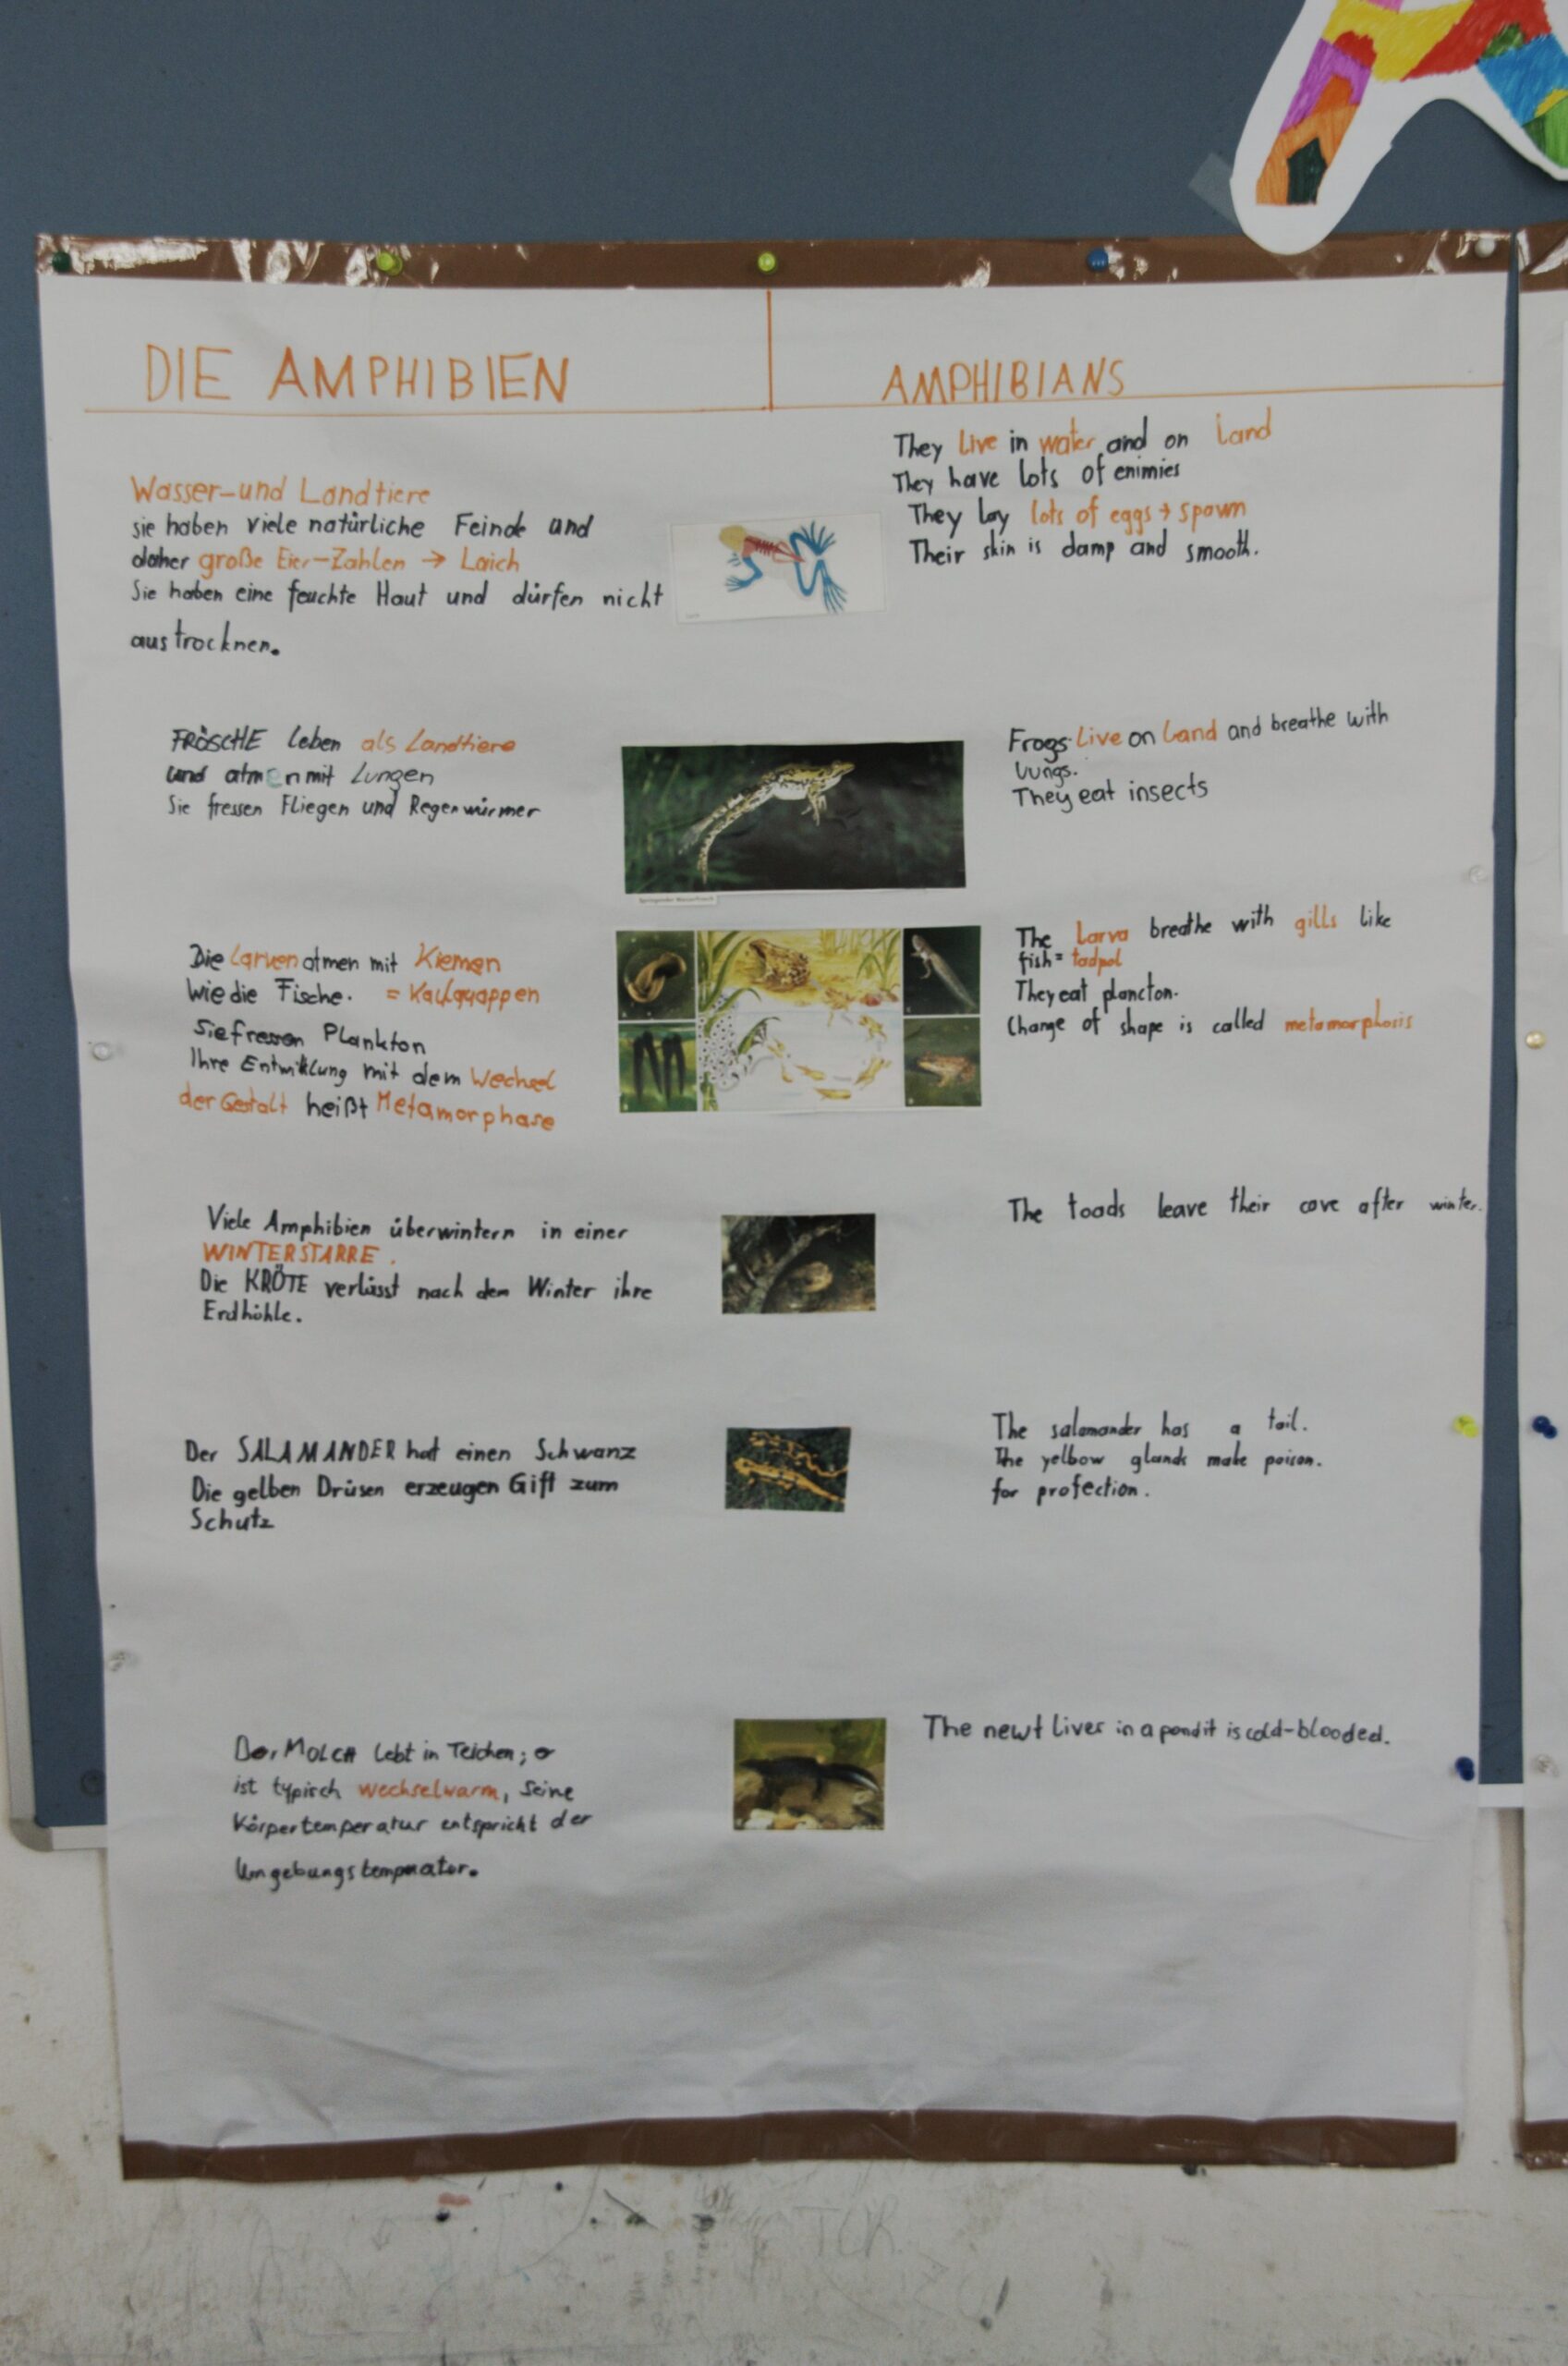 DIE AMPHIBIEN
Wasser-und Landtiere
sie haben viele natürliche Feinde und
daher große Eier-Zahlen → Laich
Sie haben eine feuchte Haut und dürfen nicht
austrocknen.
FRÖSCHE leben als Landtiere
und atmen mit Lungen
Sie fressen Fliegen und Regenwürmer
Die Larven atmen mit Kiemen
wie die Fische. = Kaulquappen
Sie fressen Plankton
Ihre Entwiklung mit dem Wechsel
der Gestalt heißt Metamorphase
Viele Amphibien überwintern in einer
WINTERSTARRE.
Die KRÖTE verlässt nach dem Winter ihre
Erdhöhle.
Der SALAMANDER hat einen Schwanz
Die gelben Drüsen erzeugen Gift zum
Schutz
Der MOLCH lebt in Teichen;
ist typisch wechselwarm, seine
Körpertemperatur entspricht der
AMPHIBIANS
They live in water and on land
They have lots of enimies
They lay lots of eggs → spawn
Their skin is damp and smooth.
Frogs live on land and breathe with
lungs.
They eat insects
The larva breathe with gills like
fish = tadpol
They eat plancton.
Change of shape is called metamorphosis
The toads leave their cave after winter.
The salamander has a tail.
The yelbow glands make poison.
for profection.
The newt lives in a pond it is cold-blooded.